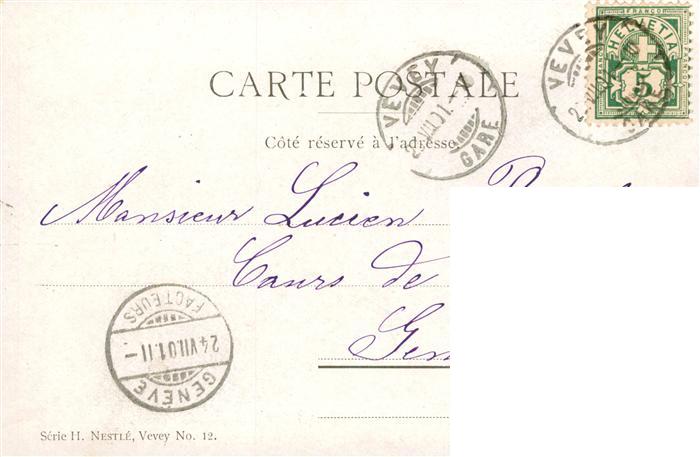 FRANCO
HELVETIA
5
VEVEY
GARE
CARTE POSTALE
VEVEY
VII.01
GARE
Côté réservé à l'adresse
Monsieur Lucien
Cours de
GENÈVE
24.VII.01.11-
FACTEURS
Série H. NESTLÉ, Vevey No. 12.